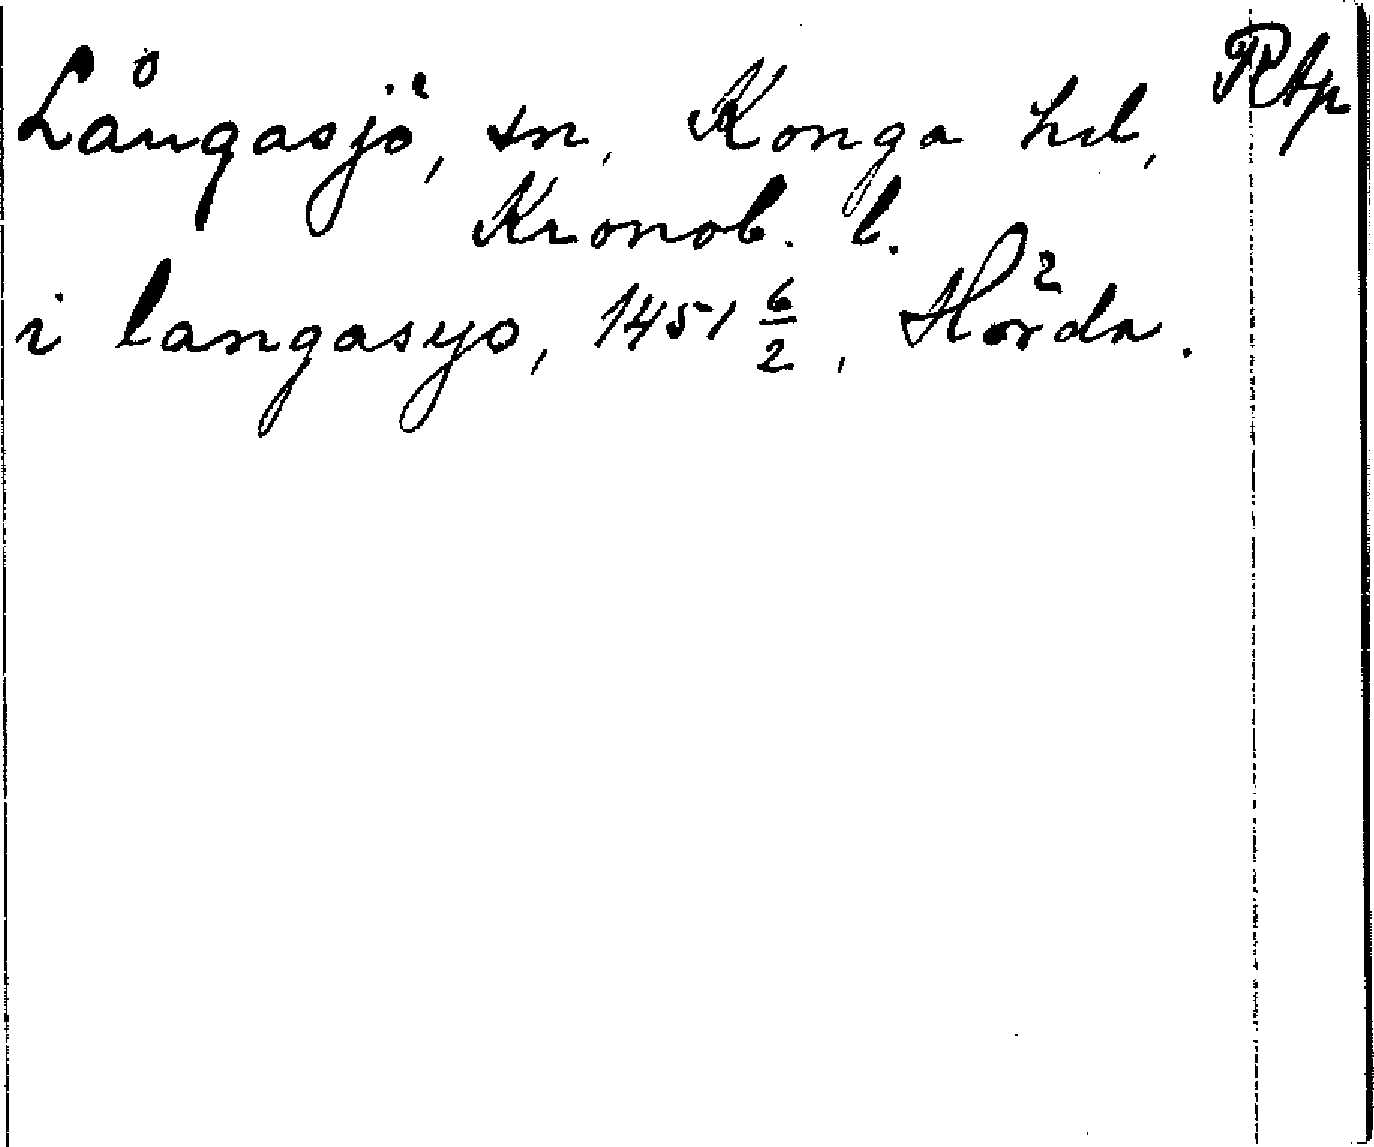 Långasjö, sn, Konga hd, Rtp
Kronob. l.
i langasyo, 1451 6/2, Hörda.